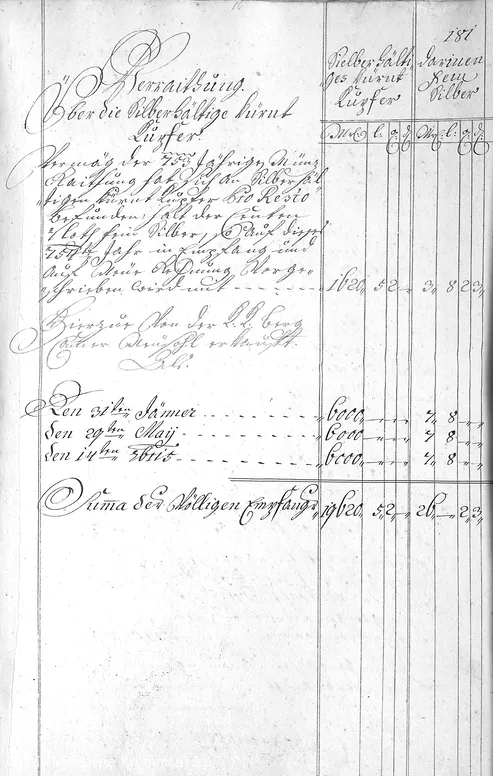 181
Verraithung.
Über die Silberhältige Kürnt
Kupfer
Silberhälti
ges Kürnt
Kupfer
darinen
Fein
Silber
Vermög der 753 Jährigen Münz
Raithung hat sich an Silberhäl
tigen Kürnt Kupfer pro Resto
befunden, halt der Centen
2 loth fein Silber, So auf dieses
754te Jahr in Empfang und
auf Neue Rechnung Vorge
schrieben wird mit 1620 52 3 8 23
Hierzue Von der K. K. Berg
Camer Neusohl erkauft.
Den 31ten Jänner 6000 7 8
den 29ten Maij 6000 7 8
den 14ten 6000 7 8
Summa der Völligen Empfangs 19620 52 26 2 3